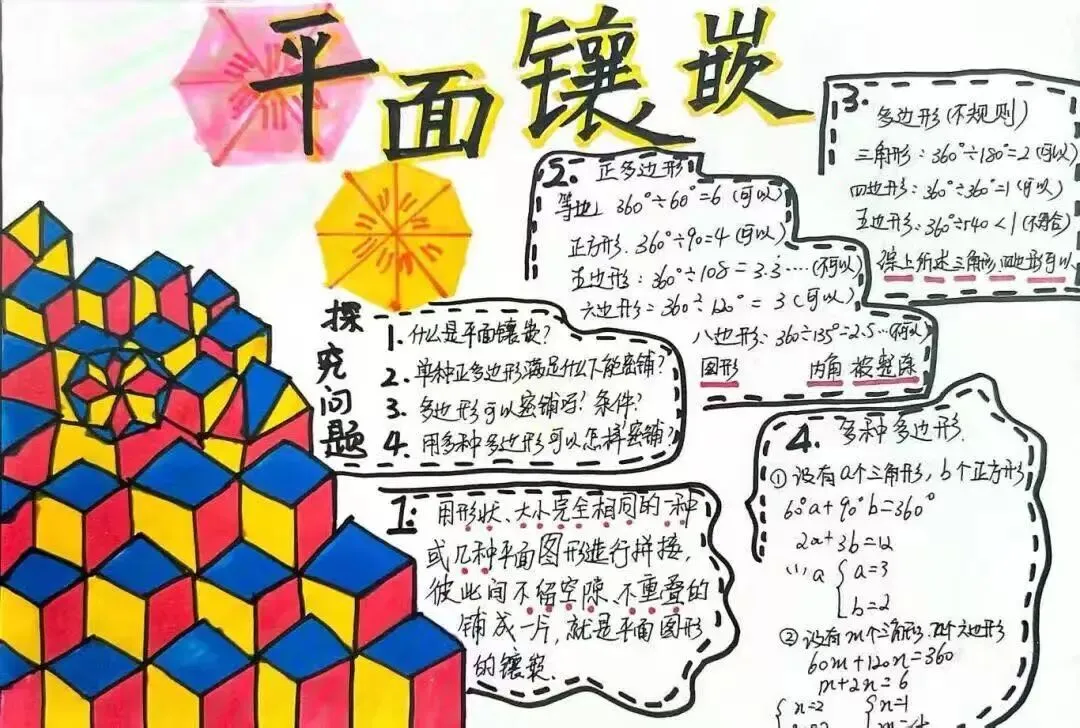 平面镶嵌
探究问题
1. 什么是平面镶嵌?
2. 单种正多边形满足什么下能密铺?
3. 多边形可以密铺吗? 条件?
4. 用多种多边形可以怎样密铺?
1. 用形状、大小完全相同的一种
或几种平面图形进行拼接,
彼此间不留空隙、不重叠的
铺成一片,就是平面图形
的镶嵌.
2. 正多边形
等边 360°÷60°=6 (可以)
正方形. 360°÷90=4 (可以)
五边形: 360°÷108=3.3…(不可以)
六边形: 360÷120°=3 (可以)
八边形: 360÷135°=2.5…(不可以)
图形 内角 被整除
3. 多边形(不规则)
三角形: 360°÷180°=2 (可以)
四边形: 360°÷360°=1 (可以)
五边形: 360°÷540<1 (不符合)
综上所述三角形,四边形可以
4. 多种多边形.
① 设有a个三角形, b个正方形
60°a+90°b=360°
2a+3b=12
a=3
b=2
② 设有m个三角形, n个六边形
60m+120n=360
m+2n=6
n=2 n=1